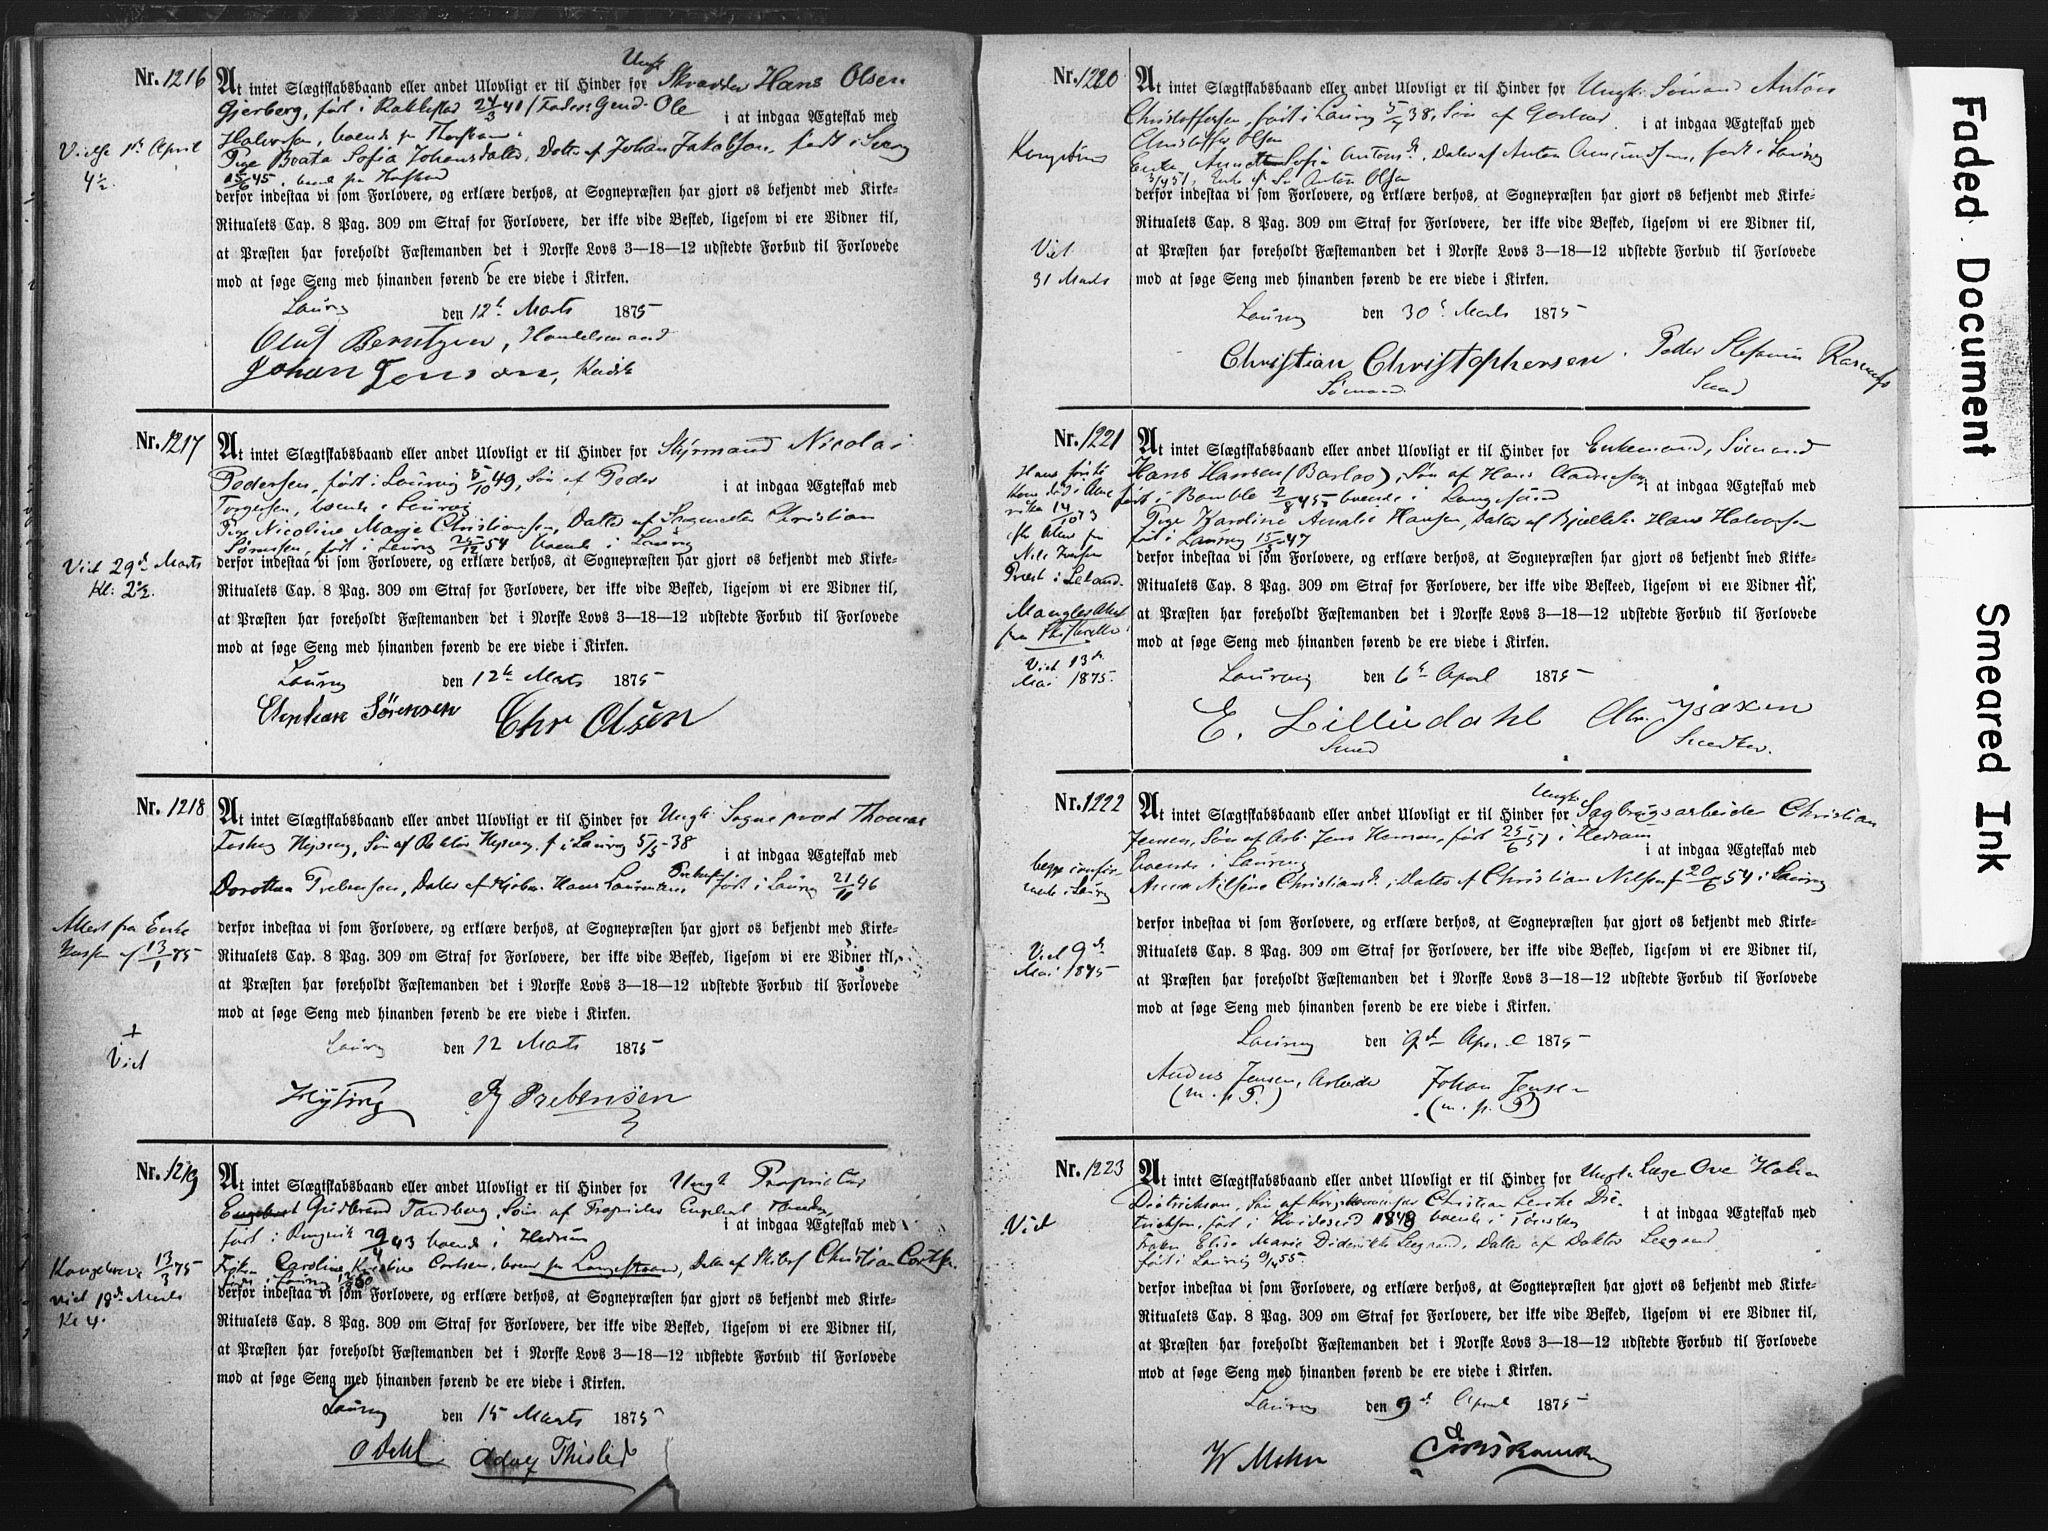 Nr. 1216
At intet Slægtskabsbaand eller andet Ulovligt er til Hinder for Ungk Skrædder Hans Olsen
Gjerberg, født i Rakkestad 24/3 41 / Fader: Gmd. Ole
i at indgaa Ægteskab med
Halvorsen, boende paa
Pige Beata Sofia Johansdatter, Datter af Johan Jakobsen, født i
15/6 45, boende paa
Vielse 1st April
4½.
derfor indestaa vi som Forlovere, og erklære derhos, at Sognepræsten har gjort os bekjendt med Kirke-
Ritualets Cap. 8 Pag. 309 om Straf for Forlovere, der ikke vide Besked, ligesom vi ere Vidner til,
at Præsten har foreholdt Fæstemanden det i Norske Lovs 3—18—12 udstedte Forbud til Forlovede
mod at søge Seng med hinanden førend de ere viede i Kirken.
Laurvig den 12te Marts 1875
Oluf Berntzen, Handelsmand
Johan Jenson, Kudsk
Nr. 1217
At intet Slægtskabsbaand eller andet Ulovligt er til Hinder for Styrmand Nicolai
Pedersen, født i Laurvig 5/10 49, Søn af Peder
i at indgaa Ægteskab med
Torgersen, boende i Laurvig
Pige Nicoline Marie Christiansen, Datter af Christian
Sørensen, født i Laurvig 25/12 54 boende i Laurvig
Viet 29de Marts
Kl. 2½.
derfor indestaa vi som Forlovere, og erklære derhos, at Sognepræsten har gjort os bekjendt med Kirke-
Ritualets Cap. 8 Pag. 309 om Straf for Forlovere, der ikke vide Besked, ligesom vi ere Vidner til,
at Præsten har foreholdt Fæstemanden det i Norske Lovs 3—18—12 udstedte Forbud til Forlovede
mod at søge Seng med hinanden førend de ere viede i Kirken.
Laurvig den 12te Marts 1875
Christian Sørensen Chr Olsen
Nr. 1218
At intet Slægtskabsbaand eller andet Ulovligt er til Hinder for Ungk. Sognepræst Thomas
Hysing, Søn af Rektor Hysing, f. i Laurvig 5/5 38
i at indgaa Ægteskab med
Dorothea Prebensen, Datter af Hans Laurentius Prebensen født i Laurvig 21/11 46
Attest fra Enke
af 13/1 75
derfor indestaa vi som Forlovere, og erklære derhos, at Sognepræsten har gjort os bekjendt med Kirke-
Ritualets Cap. 8 Pag. 309 om Straf for Forlovere, der ikke vide Besked, ligesom vi ere Vidner til,
at Præsten har foreholdt Fæstemanden det i Norske Lovs 3—18—12 udstedte Forbud til Forlovede
mod at søge Seng med hinanden førend de ere viede i Kirken.
+
Viet
Laurvig den 12 Marts 1875
Hysing Prebensen
Nr. 1219
At intet Slægtskabsbaand eller andet Ulovligt er til Hinder for Ungk Proprietær
Engebret Gudbrand Tandberg, Søn af Proprietær Engebret Tandberg,
i at indgaa Ægteskab med
født i Ringerik 29/4 43 boende i Hedrum
Frøken Caroline Kristine Corlsen, boende paa Langestrand, Datter af Skibsf Christian Corlsen
født i Laurvig
13/3 75
Viet 18de Marts
Kl 4.
derfor indestaa vi som Forlovere, og erklære derhos, at Sognepræsten har gjort os bekjendt med Kirke-
Ritualets Cap. 8 Pag. 309 om Straf for Forlovere, der ikke vide Besked, ligesom vi ere Vidner til,
at Præsten har foreholdt Fæstemanden det i Norske Lovs 3—18—12 udstedte Forbud til Forlovede
mod at søge Seng med hinanden førend de ere viede i Kirken.
Laurvig den 15 Marts 1875
O Dahl Adolf Thislid
Nr. 1220
At intet Slægtskabsbaand eller andet Ulovligt er til Hinder for Ungk. Sømand Anton
Christoffersen, født i Laurvig 38, Søn af
i at indgaa Ægteskab med
Christoffer Olsen
Enke Sofia Antonsdr, Datter af Anton Amundsen, født i Laurvig
51, Enke af Anton Olsen
Viet
31 Marts
derfor indestaa vi som Forlovere, og erklære derhos, at Sognepræsten har gjort os bekjendt med Kirke-
Ritualets Cap. 8 Pag. 309 om Straf for Forlovere, der ikke vide Besked, ligesom vi ere Vidner til,
at Præsten har foreholdt Fæstemanden det i Norske Lovs 3—18—12 udstedte Forbud til Forlovede
mod at søge Seng med hinanden førend de ere viede i Kirken.
Laurvig den 30te Marts 1875
Christian Christophersen. Peder
Sømand Smed
Nr. 1221
At intet Slægtskabsbaand eller andet Ulovligt er til Hinder for Enkemand, Sømand
Hans Hansen (Barlao), Søn af Hans Andersen,
i at indgaa Ægteskab med
født i Bamble 2/8 45 boende i Langesund
Pige Karoline Amalie Hansen, Datter af Hans Halvorsen
født i Laurvig 15/3 47
Hans første
Kone død i Ame
rika 14/10 73
efter Attest fra
Nils
Præst i Leland.
Mangler Attest
fra
Viet 13de
Mai 1875.
derfor indestaa vi som Forlovere, og erklære derhos, at Sognepræsten har gjort os bekjendt med Kirke-
Ritualets Cap. 8 Pag. 309 om Straf for Forlovere, der ikke vide Beskeed, ligesom vi ere Vidner til,
at Præsten har foreholdt Fæstemanden det i Norske Lovs 3—18—12 udstedte Forbud til Forlovede
mod at søge Seng med hinanden førend de ere viede i Kirken.
Laurvig den 6te April 1875
E. Lilliedahl Abr. Isaxen
Smed Snedker.
Nr. 1222
At intet Slægtskabsbaand eller andet Ulovligt er til Hinder for Ungk. Sagbrugsarbeider Christian
Jensen, Søn af Arb. Jens Hansen, født 25/6 51 i Hedrum
i at indgaa Ægteskab med
boende i Laurvig
Anna Nilsine Christiansdr, Datter af Christian Nilsen f 20/6 54 i Laurvig
begge confir-
merede i Laurvig
Viet 9de
Mai 1875
derfor indestaa vi som Forlovere, og erklære derhos, at Sognepræsten har gjort os bekjendt med Kirke-
Ritualets Cap. 8 Pag. 309 om Straf for Forlovere, der ikke vide Besked, ligesom vi ere Vidner til,
at Præsten har foreholdt Fæstemanden det i Norske Lovs 3—18—12 udstedte Forbud til Forlovede
mod at søge Seng med hinanden førend de ere viede i Kirken.
Laurvig den 9de April 1875
Anders Jensen, Arbeider Johan Jensen
(m. p. P.) (m. p. P)
Nr. 1223
At intet Slægtskabsbaand eller andet Ulovligt er til Hinder for Ungk. Læge Ove Holm
Dietrichson, Søn af Christian Lerche Die-
i at indgaa Ægteskab med
trichson, født i Hvideseid 1848 boende i
Frøken Elise Marie Diderikke Leegaard, Datter af Doktor Leegaard
født i Laurvig 55.
Viet
derfor indestaa vi som Forlovere, og erklære derhos, at Sognepræsten har gjort os bekjendt med Kirke-
Ritualets Cap. 8 Pag. 309 om Straf for Forlovere, der ikke vide Besked, ligesom vi ere Vidner til,
at Præsten har foreholdt Fæstemanden det i Norske Lovs 3—18—12 udstedte Forbud til Forlovede
mod at søge Seng med hinanden førend de ere viede i Kirken.
Laurvig den 9de April 1875
Faded Document Smeared Ink